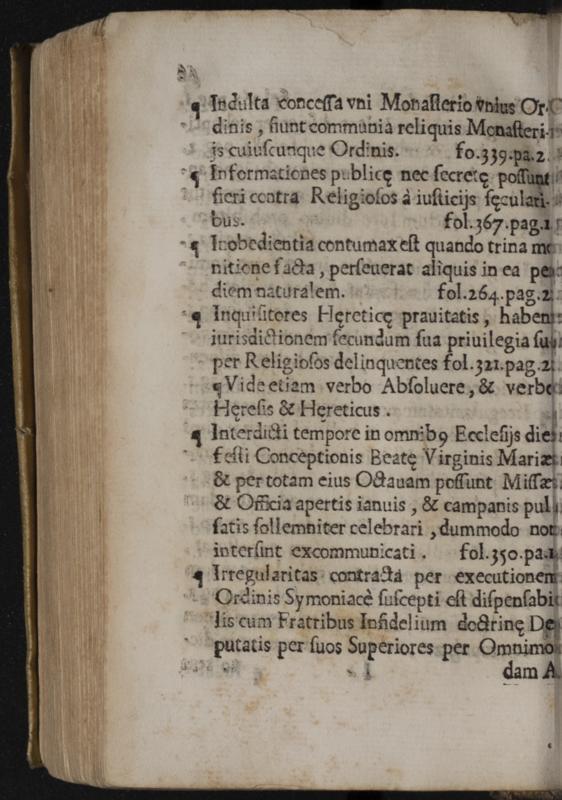 ¶ Indulta concessa vni Monasterio vnius Or-
dinis, fiunt communia reliquis Monasteri-
js cuiuscunque Ordinis. fo.339.pa.2.
¶ Informationes publicę nec secretę possunt
fieri contra Religiosos à iusticijs sęculari-
bus. fol.367.pag.1
¶ Inobedientia contumax est quando trina mo
nitione facta, perseuerat aliquis in ea pe
diem naturalem. fol.264.pag.2
¶ Inquisitores Hęreticę prauitatis, haben
iurisdictionem secundum sua priuilegia su
per Religiosos delinquentes fol.321.pag.2
¶ Vide etiam verbo Absoluere, & verbo
Hęresis & Hęreticus.
¶ Interdicti tempore in omnib9 Ecclesijs die
festi Conceptionis Beatę Virginis Mariæ
& per totam eius Octauam possunt Missæ
& Officia apertis ianuis, & campanis pul
satis sollemniter celebrari, dummodo non
intersint excommunicati. fol.350.pa.1
¶ Irregularitas contracta per executionem
Ordinis Symoniacè suscepti est dispensabi
lis cum Fratribus Infidelium doctrinę De
putatis per suos Superiores per Omnimo
dam A